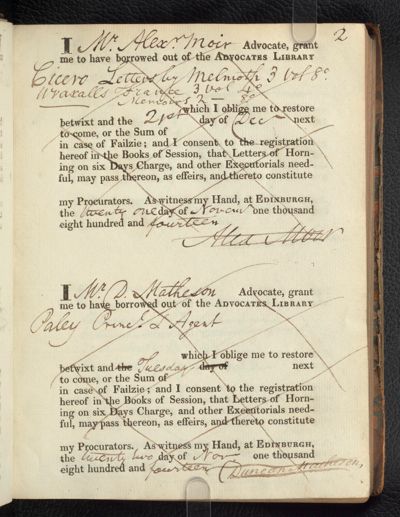 2
I Mr. Alexr Moir Advocate, grant
me to have borrowed out of the ADVOCATES LIBRARY
Cicero Letters by Melmoth 3 vol 8o.
Wraxalls France 3 vol 4o
Memoirs 2 — 8o
which I oblige me to restore
betwixt and the 21st day of Decr next
to come, or the Sum of
in case of Failzie; and I consent to the registration
hereof in the Books of Session, that Letters of Horn-
ing on six Days Charge, and other Executorials need-
ful, may pass thereon, as effeirs, and thereto constitute
my Procurators. As witness my Hand, at EDINBURGH,
the twenty one day of Novemr one thousand
eight hundred and fourteen
Alex Moir
I Mr. D. Matheson Advocate, grant
me to have borrowed out of the ADVOCATES LIBRARY
Paley Princ. & Agent
which I oblige me to restore
betwixt and the Tuesday day of next
to come, or the Sum of
in case of Failzie; and I consent to the registration
hereof in the Books of Session, that Letters of Horn-
ing on six Days Charge, and other Executorials need-
ful, may pass thereon, as effeirs, and thereto constitute
my Procurators. As witness my Hand, at EDINBURGH,
the twenty two day of Nov one thousand
eight hundred and fourteen Duncan Matheson